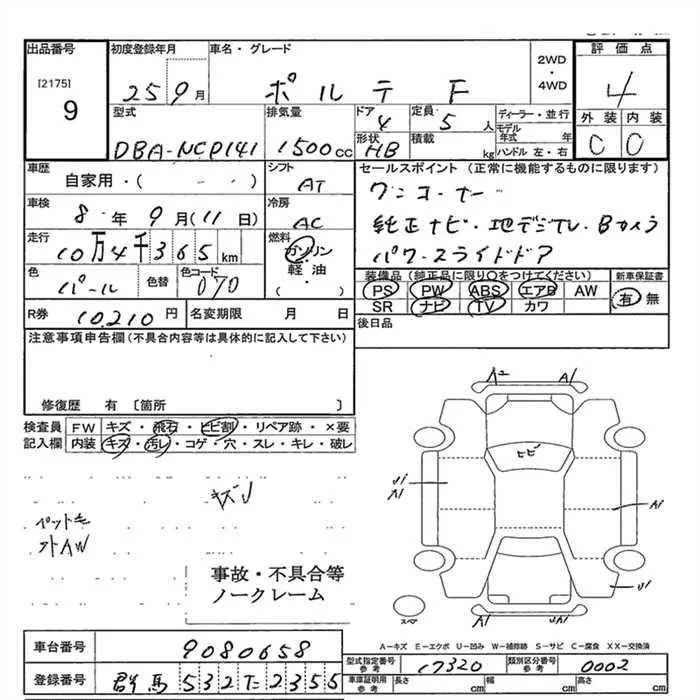 出品番号 初度登録年月 車名・グレード 評価点
[2175] 9
25 9月 ポルテ F 2WD・4WD 4
型式 排気量 ドア 4 定員 5人 ディーラー・並行 外装 内装
DBA-NCP141 1500cc 形状 HB 積載 kg モデル年式 年 ハンドル 左・右 C C
車歴 自家用・( ) シフト AT セールスポイント(正常に機能するものに限ります)
ワンオーナー
車検 8年9月(11日) 冷房 AC 純正ナビ・地デジTV・Bカメラ
走行 10万4千365km 燃料 ガソリン・軽油・( ) パワースライドドア
色 パール 色替 色コード 070 装備品(純正品に限り○をつけてください) 新車保証書
PS PW ABS エアB AW 有 無
SR ナビ TV カワ
R券 10,210円 名変期限 月 日 後日品
注意事項申告欄(不具合内容等は具体的に記入して下さい)
修復歴 有 〔箇所 〕
検査員記入欄 FW キズ・飛石・ヒビ割・リペア跡・×要
内装 キズ・汚レ・コゲ・穴・スレ・キレ・破レ
A2 A1
ヒビ
キズU
U1
A1
A1
ペット毛
外AW
U1
事故・不具合等
ノークレーム
スペア
A1 A1
A-キズ E-エクボ U-凹み W-補修跡 S-サビ C-腐食 XX-交換済
車台番号 9080658
型式指定番号 参考 17320 類別区分番号 参考 0002
登録番号 群馬 532 て 2355
車庫証明用 参考 長さ cm 幅 cm 高さ cm